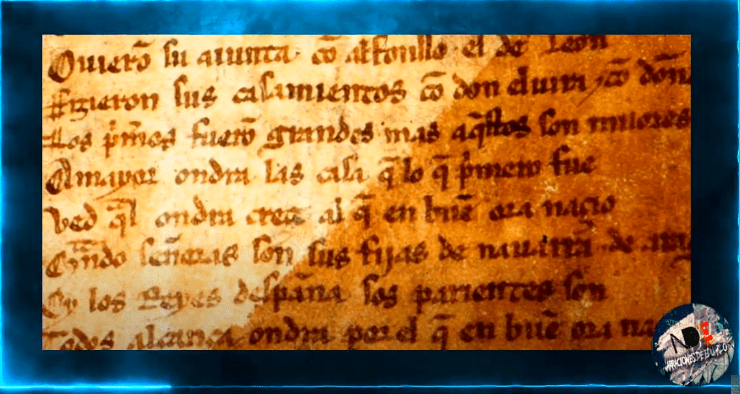 Ouierõ su aiunta cõ alfonsso el de Leon
ffizieron sus casamientos cõ don eluira ⁊ cõ doña
Los p̃meros fuerõ grandes mas aq̃stos son miiores
A mayor ondra las casa q̃ lo q̃ p̃mero fue
Ved q̃l ondra creçe al q̃ en buẽ ora naçio
Qñdo señoras son sus fijas de nauarra ⁊ de arag
Oy los Reyes despaña sos parientes son
Todos alcança ondra por el q̃ en buẽ ora na
NARRACIONESDELBÚHO